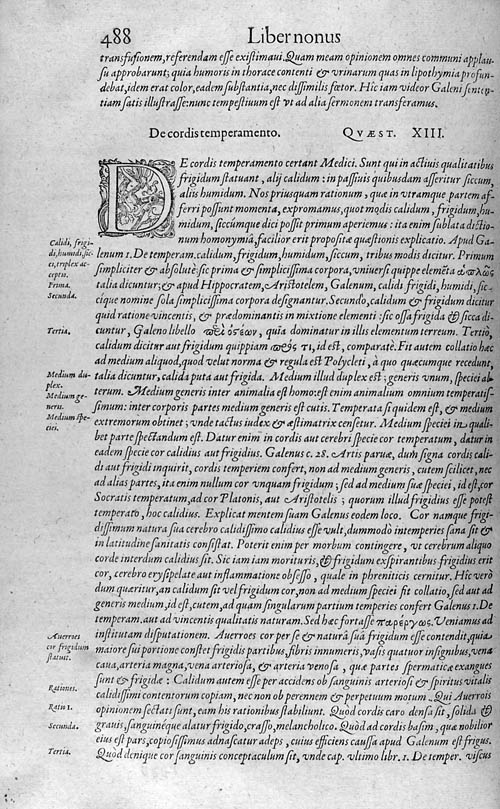 488 Liber nonus
transfusionem, referendam esse existimaui. Quam meam opinionem omnes communi applau-
su approbarunt; quia humoris in thorace contenti & vrinarum quas in lipothymia profun-
debat, idem erat color, eadem substantia, nec dissimilis fœtor. Hic iam videor Galeni senten-
tiam satis illustrasse: nunc tempestiuum est vt ad alia sermonem transferamus.
De cordis temperamento. QVÆST. XIII.
DE cordis temperamento certant Medici. Sunt qui in actiuis qualitatibus
frigidum statuant, alij calidum: in passiuis quibusdam asseritur siccum,
aliis humidum. Nos priusquam rationum, quæ in vtramque partem af-
ferri possunt momenta, expromamus, quot modis calidum, frigidum, hu-
midum, siccúmque dici possit primum aperiemus: ita enim sublata dictio-
num homonymia, facilior erit propositæ quæstionis explicatio. Apud Ga-
Calidi, frigi-
di, humidi, sic-
ci, triplex ac-
ceptio.
lenum 1. De temperam. calidum, frigidum, humidum, siccum, tribus modis dicitur. Primum
simpliciter & absolutè: sic prima & simplicissima corpora, vniuersi quippe elemẽta ἁπλῶς
Prima.
talia dicuntur; & apud Hippocratem, Aristotelem, Galenum, calidi frigidi, humidi, sic-
Secunda.
cique nomine sola simplicissima corpora designantur. Secundo, calidum & frigidum dicitur
quid ratione vincentis, & prædominantis in mixtione elementi: sic ossa frigida & sicca di-
Tertia.
cuntur, Galeno libello περὶ ὀστέων, quia dominatur in illis elementum terreum. Tertiò,
calidum dicitur aut frigidum quippiam πρός τι, id est, comparatè. Fit autem collatio hæc
ad medium aliquod, quod velut norma & regula est Polycleti, à quo quæcumque recedunt,
Medium du-
plex.
talia dicuntur, calida puta aut frigida. Medium illud duplex est; generis vnum, speciei al-
Medium ge-
neris.
terum. Medium generis inter animalia est homo: est enim animalium omnium temperatis-
simum: inter corporis partes medium generis est cutis. Temperata siquidem est, & medium
Medium spe-
ciei.
extremorum obtinet; vnde tactus iudex & æstimatrix censetur. Medium speciei in quali-
bet parte spectandum est. Datur enim in cordis aut cerebri specie cor temperatum, datur in
eadem specie cor calidius aut frigidius. Galenus c. 28. Artis paruæ, dum signa cordis cali-
di aut frigidi inquirit, cordis temperiem confert, non ad medium generis, cutem scilicet, nec
ad alias partes, ita enim nullum cor vnquam frigidum; sed ad medium suæ speciei, id est, cor
Socratis temperatum, ad cor Platonis, aut Aristotelis; quorum illud frigidius esse potest
temperato, hoc calidius. Explicat mentem suam Galenus eodem loco. Cor namque frigi-
dissimum natura sua cerebro calidissimo calidius esse vult, dummodò intemperies sana sit &
in latitudine sanitatis consistat. Poterit enim per morbum contingere, vt cerebrum aliquo
corde interdum calidius sit. Sic iam iam morituris, & frigidum exspirantibus frigidius erit
cor, cerebro erysipelate aut inflammatione obsesso, quale in phreniticis cernitur. Hic verò
dum quæritur, an calidum sit vel frigidum cor, non ad medium speciei fit collatio, sed aut ad
generis medium, id est, cutem, ad quam singularum partium temperies confert Galenus 1. De
temperam. aut ad vincentis qualitatis naturam. Sed hæc fortasse παρέργως. Veniamus ad
Auerroes
cor frigidum
statuit.
institutam disputationem. Auerroes cor per se & naturâ suâ frigidum esse contendit, quia
maiore sui portione constet frigidis partibus, fibris innumeris, vasis quatuor insignibus, vena
caua, arteria magna, vena arteriosa, & arteria venosa, quæ partes spermaticæ exangues
sunt & frigidæ: Calidum autem esse per accidens ob sanguinis arteriosi & spiritus vitalis
Rationes.
calidissimi contentorum copiam, nec non ob perennem & perpetuum motum. Qui Auerrois
Ratio 1.
opinionem sectati sunt, eam his rationibus stabiliunt. Quod cordis caro densa sit, solida &
Secunda.
grauis, sanguinéque alatur frigido, crasso, melancholico. Quòd ad cordis basim, quæ nobilior
eius est pars, copiosissimus adnascatur adeps, cuius efficiens caussa apud Galenum est frigus.
Tertia.
Quòd denique cor sanguinis conceptaculum sit, vnde cap. vltimo libr. 1. De temper. viscus